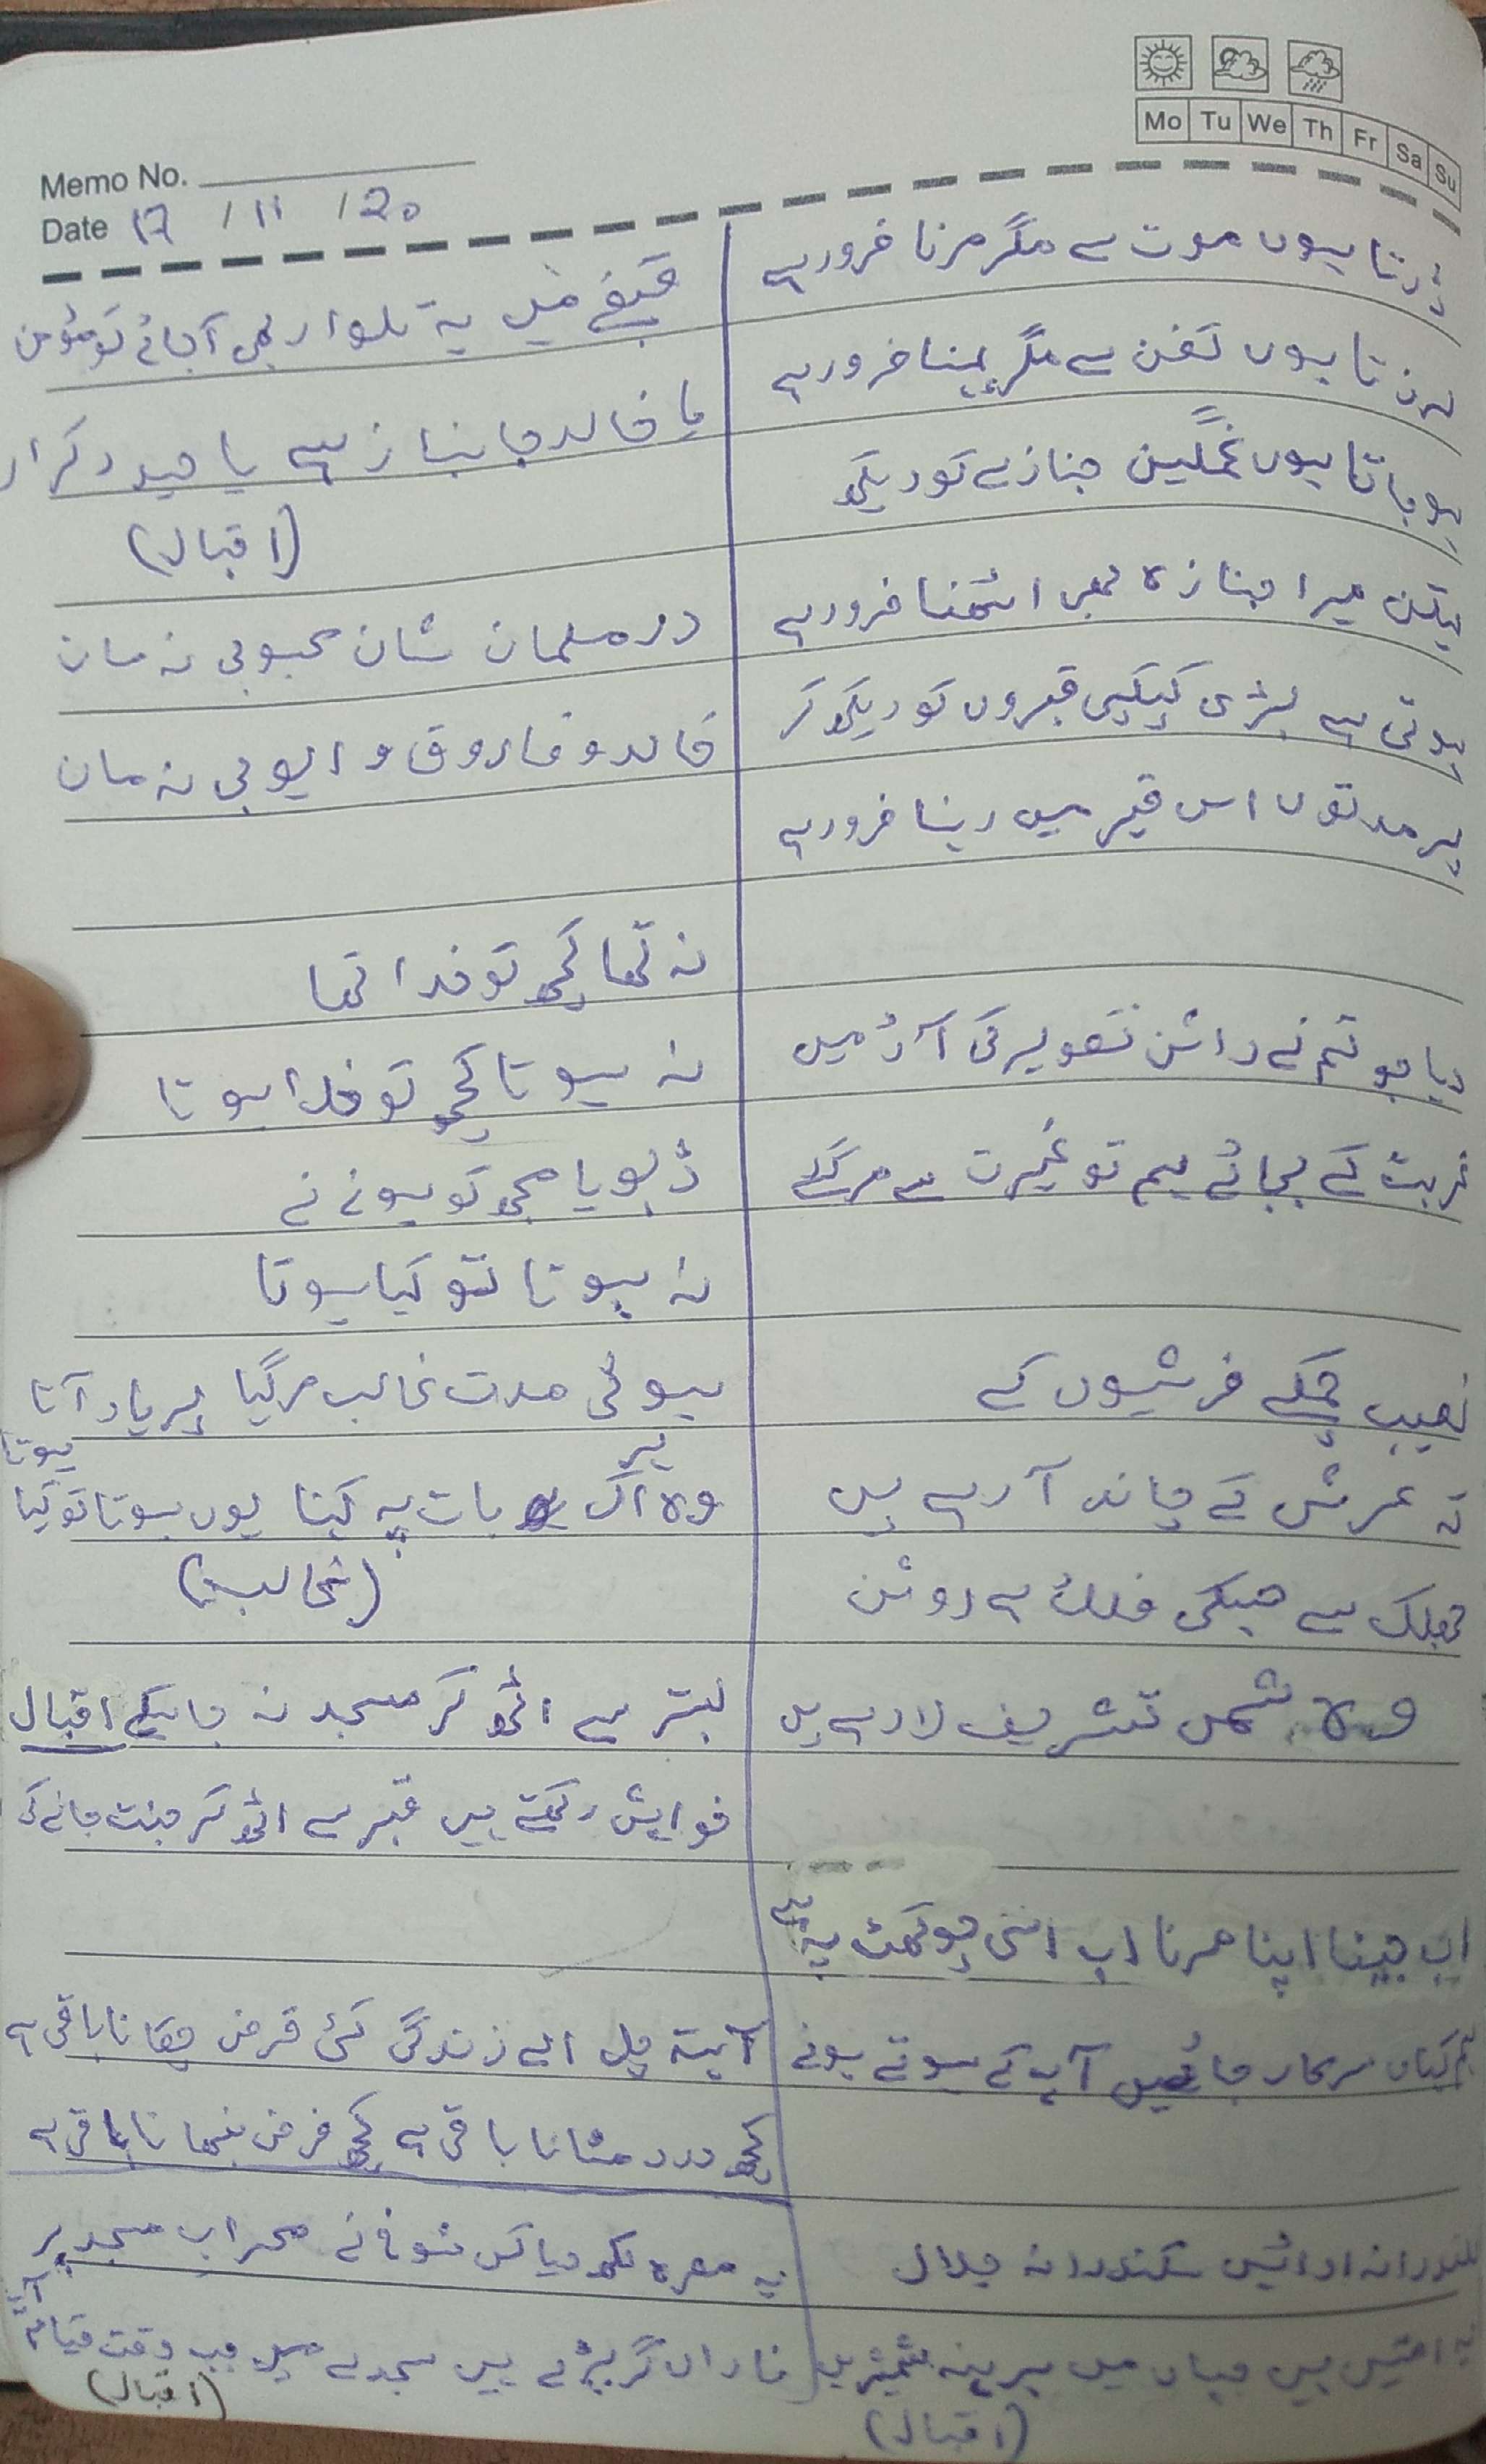 Mo Tu We Th Fr Sa Su
Memo No.
Date 17 / 11 / 20
ڈرتا ہوں موت سے مگر مرنا ضرور ہے
لرزتا ہوں کفن سے مگر پہننا ضرور ہے
ہوجاتا ہوں غمگین جنازے کو دیکھ
لیکن میرا جنازہ بھی اٹھنا ضرور ہے
ہوتی ہے بڑی کپکپی قبروں کو دیکھ کر
پر مدتوں اس قبر میں رہنا ضرور ہے
دیا جو تم نے راشن تصویر کی آڑ میں
غربت کے بجائے ہم تو غیرت سے مر گئے
نصیب چمکے فرشیوں کے
کہ عرش کے چاند آرہے ہیں
جھلک سے جنکی فلک ہے روشن
وہ شمس تشریف لارہے ہیں
اب جینا اپنا مرنا اب اسی چوکھٹ پہ ہے
ہم کہاں سرکار جائیں آپ کے ہوتے ہوئے
قلندرانہ ادائیں سکندرانہ جلال
یہ امتیں ہیں جہاں میں برہنہ شمشیریں
(اقبال)
قبضے میں یہ تلوار بھی آجائے تو مؤمن
یا خالد جانباز ہے یا حیدر کرار
(اقبال)
در مسلمان شان محبوبی نہ مان
خالد و فاروق و ایوبی نہ مان
نہ تھا کچھ تو خدا تھا
نہ ہوتا کچھ تو خدا ہوتا
ڈبویا مجھ کو ہونے نے
نہ ہوتا تو کیا ہوتا
ہوئی مدت غالب مر گیا پر یاد آتا
وہ اک ہر بات پہ کہنا یوں ہوتا تو کیا ہوتا
(غالب)
بستر سے اٹھ کر مسجد نہ جاسکے اقبال
خواہش رکھتے ہیں قبر سے اٹھ کر جنت جانے کی
آہستہ چل اے زندگی کئی قرض چکانا باقی ہے
کچھ درد مٹانا باقی ہے کچھ فرض نبھانا باقی ہے
یہ مصرہ لکھ دیا کس شوخ نے محراب مسجد پر
ناداں گر پڑے ہیں سجدے میں جب وقت قیام آیا
(اقبال)